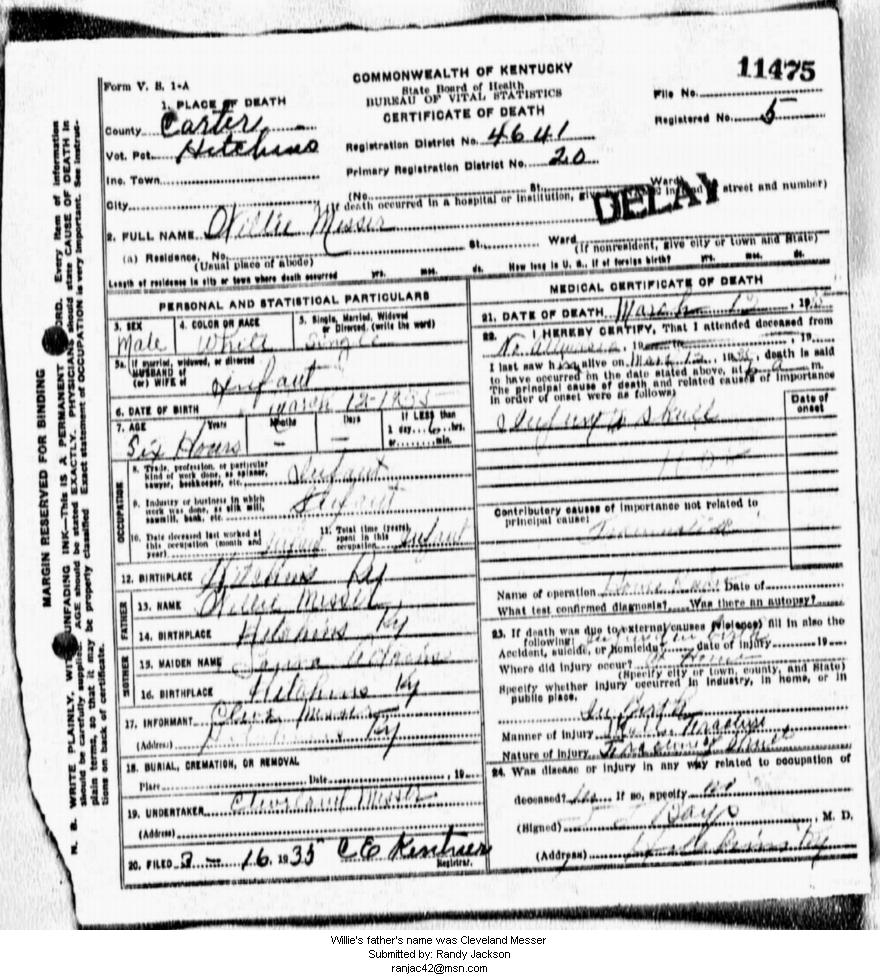 COMMONWEALTH OF KENTUCKY
State Board of Health
BUREAU OF VITAL STATISTICS
CERTIFICATE OF DEATH
11475
Form V. S. 1-A
File No.
Registered No. 5
1. PLACE OF DEATH
County Carter
Vot. Pct. Hitchins
Inc. Town
City
Registration District No. 4641
Primary Registration District No. 20
(No. St. Ward)
death occurred in a hospital or institution, street and number)
DELAY
2. FULL NAME Willie Messer
(a) Residence, No. St. Ward
(Usual place of abode) (If nonresident, give city or town and State)
Length of residence in city or town where death occurred yrs. mos. ds. How long in U. S., if of foreign birth? yrs. mos. ds.
PERSONAL AND STATISTICAL PARTICULARS
3. SEX Male
4. COLOR OR RACE White
5. Single, Married, Widowed or Divorced (write the word) Single
5a. If married, widowed, or divorced
HUSBAND of
(or) WIFE of Infant
6. DATE OF BIRTH March 12-1935
7. AGE Years Months Days If LESS than
Six Hours - - 1 day 6 hrs.
or min.
OCCUPATION
8. Trade, profession, or particular kind of work done, as spinner, sawyer, bookkeeper, etc. Infant
9. Industry or business in which work was done, as silk mill, sawmill, bank, etc. Infant
10. Date deceased last worked at this occupation (month and year) Infant
11. Total time (years) spent in this occupation Infant
12. BIRTHPLACE Hitchins Ky
FATHER
13. NAME Willie Messer
14. BIRTHPLACE Hitchins Ky
MOTHER
15. MAIDEN NAME
16. BIRTHPLACE Hitchins Ky
17. INFORMANT Messer
(Address) Ky
18. BURIAL, CREMATION, OR REMOVAL
Place Date 19
19. UNDERTAKER Cleveland Messer
(Address)
20. FILED 3-16, 1935 C E
Registrar.
MEDICAL CERTIFICATE OF DEATH
21. DATE OF DEATH March 12, 1935
22. I HEREBY CERTIFY, That I attended deceased from
No, 19 , 19
I last saw h alive on 19, death is said
to have occurred on the date stated above, at 6 a m.
The principal cause of death and related causes of importance
in order of onset were as follows:
Date of onset
Injury to Skull
Contributory causes of importance not related to
principal cause:
Name of operation Date of
What test confirmed diagnosis? Was there an autopsy?
23. If death was due to external causes (violence) fill in also the
following:
Accident, suicide, or homicide? date of injury 19
Where did injury occur? Home
(Specify city or town, county, and State)
Specify whether injury occurred in industry, in home, or in
public place,
In Birth
Manner of injury
Nature of injury
24. Was disease or injury in any way related to occupation of
deceased? If so, specify no
(Signed) Bays, M. D.
(Address) Ky
MARGIN RESERVED FOR BINDING
N. B. WRITE PLAINLY, WITH UNFADING INK—This is A PERMANENT RECORD. Every item of information
should be carefully supplied. AGE should be stated EXACTLY. PHYSICIANS should state CAUSE OF DEATH in
plain terms, so that it may be properly classified. Exact statement of OCCUPATION is very important. See instruc-
tions on back of certificate.
Willie's father's name was Cleveland Messer
Submitted by: Randy Jackson
ranjac42@msn.com